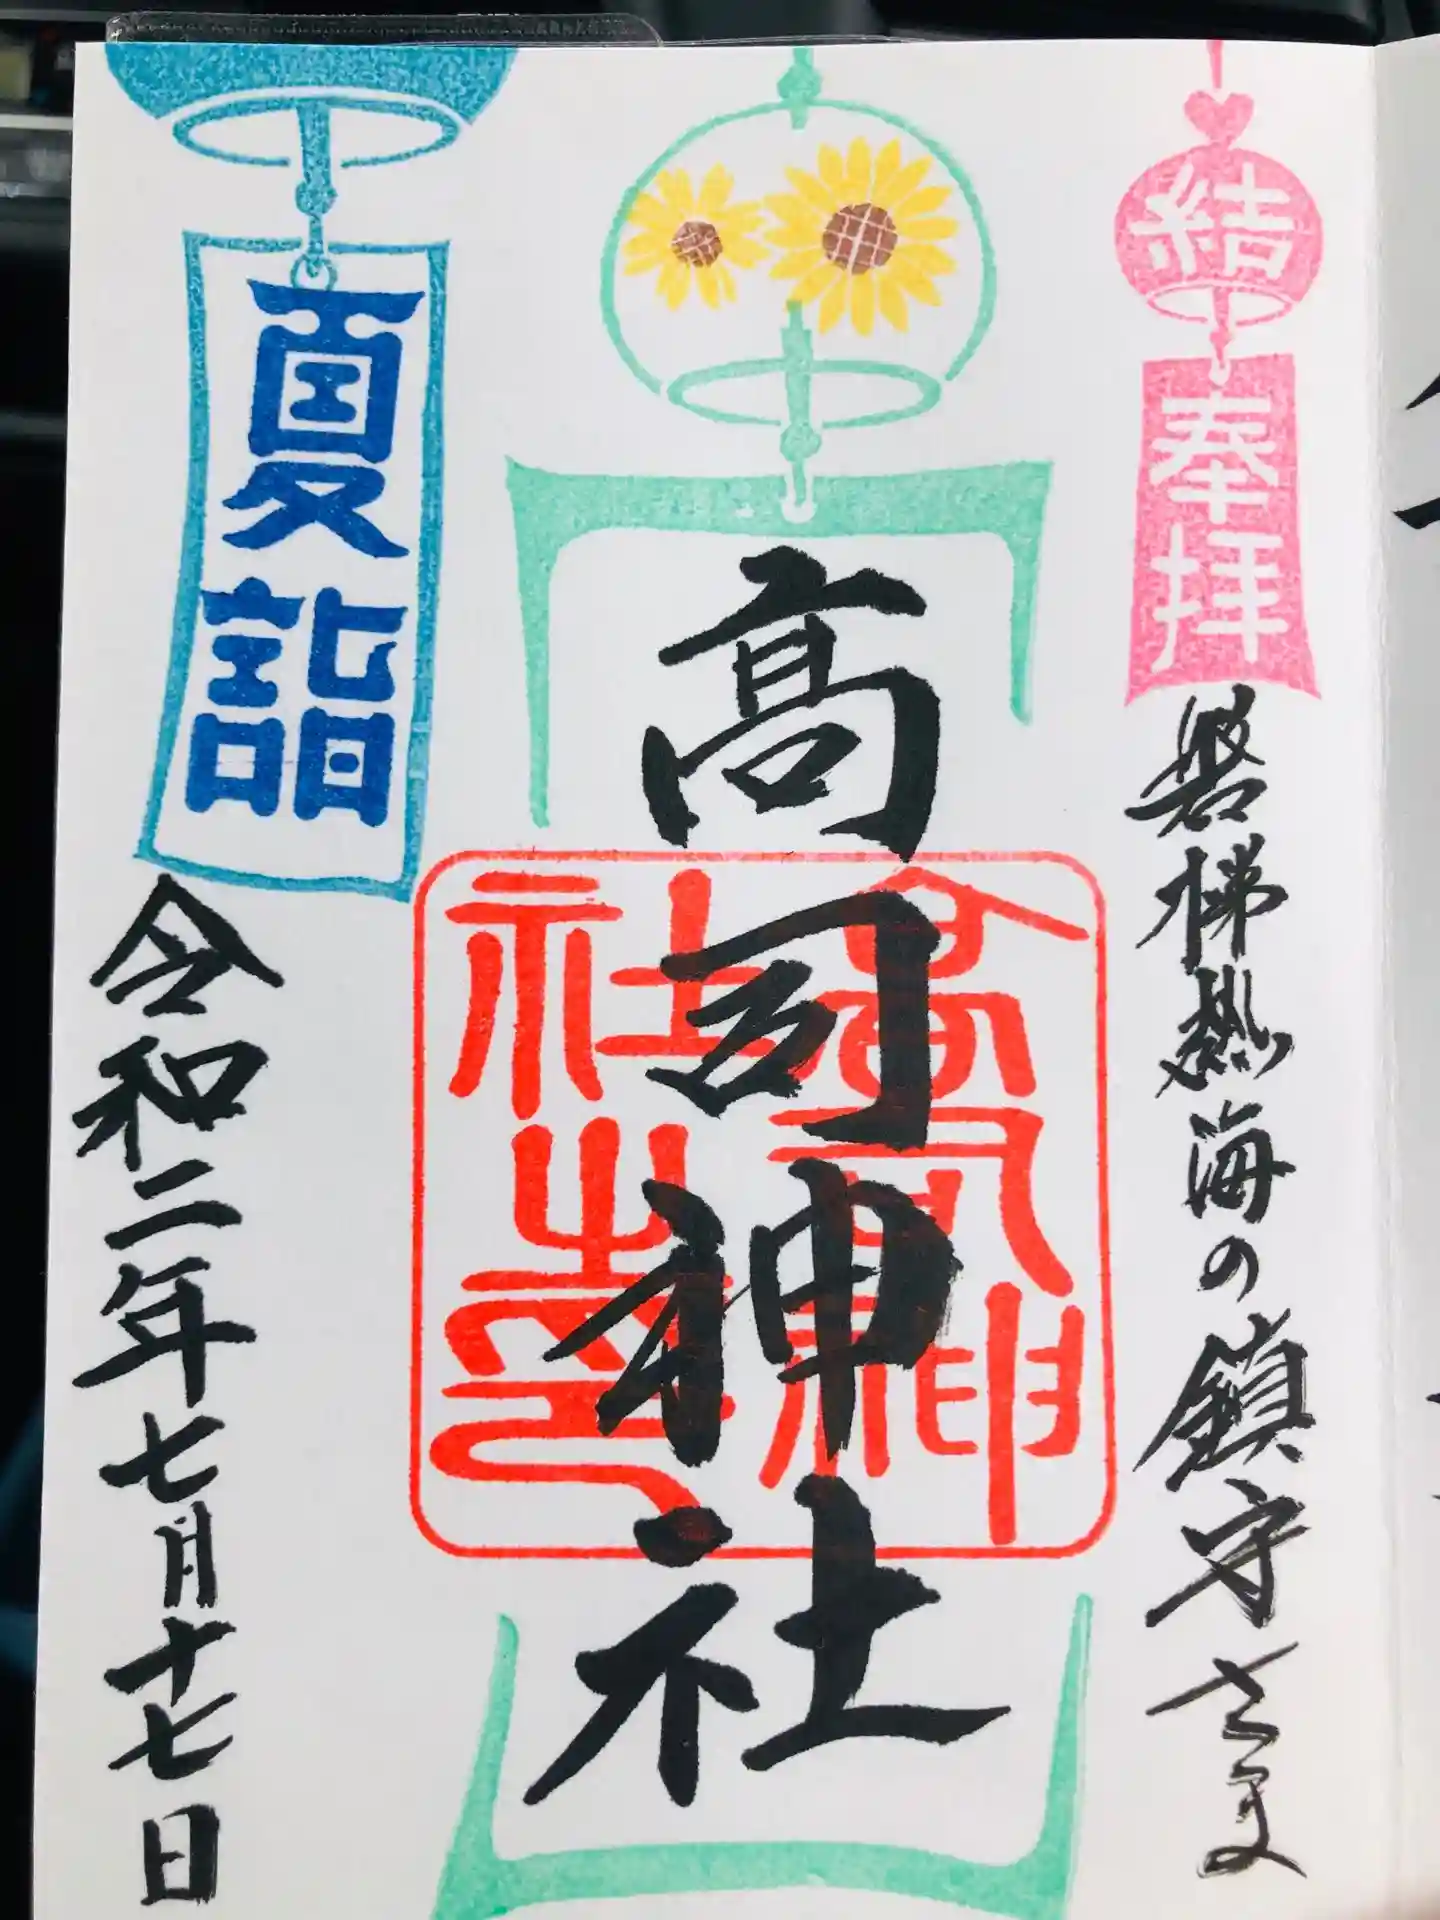 結
奉拝
磐梯熱海の鎮守さま
高司神社
高司神
社之印
夏詣
令和二年七月十七日